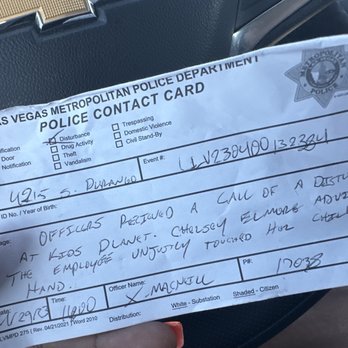 AS VEGAS METROPOLITAN POLICE DEPARTMENT
POLICE CONTACT CARD
METROPOLITAN
POLICE
fication
Disturbance
Trespassing
Door
Drug Activity
Domestic Violence
Notification
Theft
Civil Stand-By
Vandalism
Event #:
4215 S. DURANGO
LLV230400132384
ID No. / Year of Birth:
OFFICERS RECEIVED A CALL OF A DISTU
AT KIDS PLANET. CHELSEY ELMORE ADVI
THE EMPLOYEE UNJUSTLY TOUCHED HER CHIL
HAND.
Date:
Time:
Officer Name:
P#:
1600
17038
LVMPD 275 (Rev. 04/21/2021) Word 2010
Distribution:
White - Substation
Shaded - Citizen